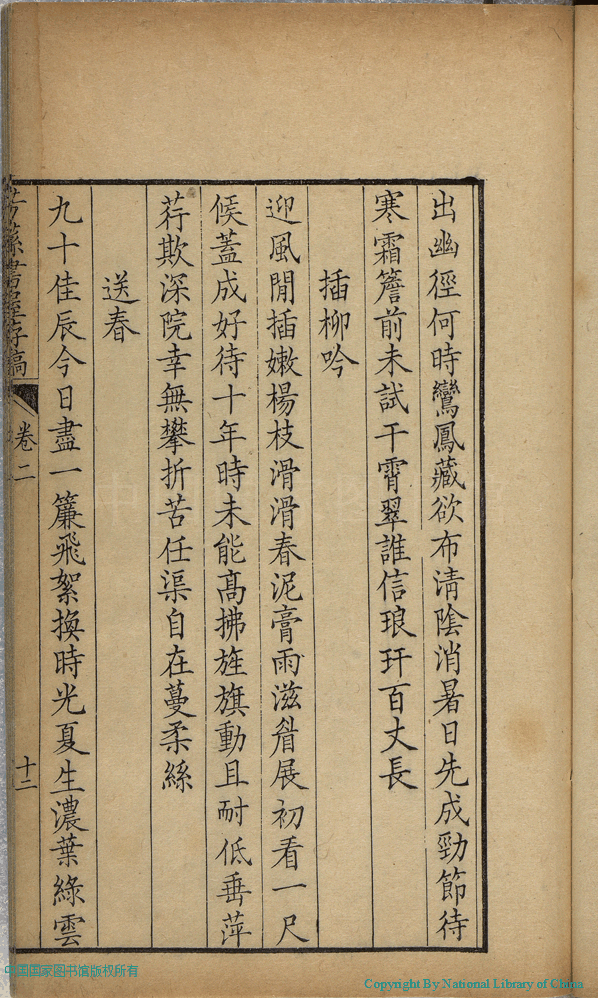 出幽徑何時鸞鳳藏欲布淸陰消暑日先成勁節待
寒霜簷前未試干霄翠誰信琅玕百丈長
插柳吟
迎風閒插嫩楊枝滑滑春泥膏雨滋眉展初看一尺
候蓋成好待十年時未能高拂旌旗動且耐低垂萍
荇欺深院幸無攀折苦任渠自在蔓柔絲
送春
九十佳辰今日盡一簾飛絮換時光夏生濃葉綠雲
書屋存稿
卷二
十二
中国国家图书馆版权所有
Copyright By National Library of China